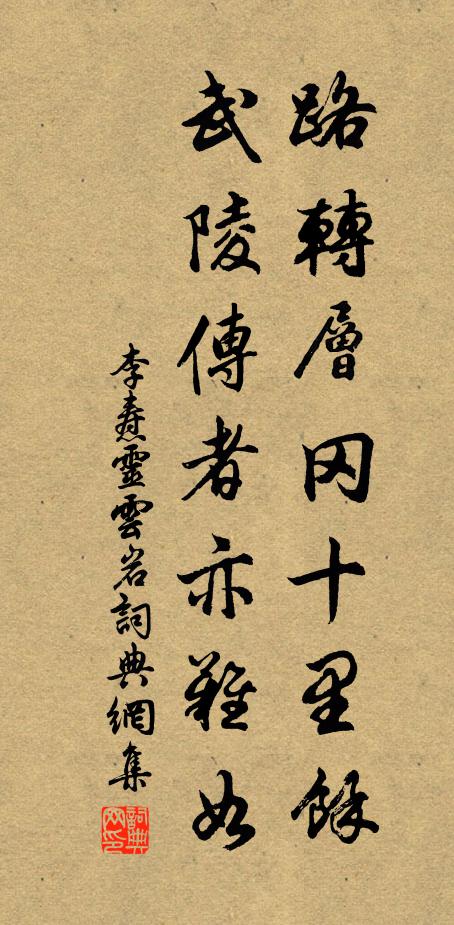 路轉層冈十里餘
武陵傳者亦難如
李焘靈雲岩詞典網集
詞典网印